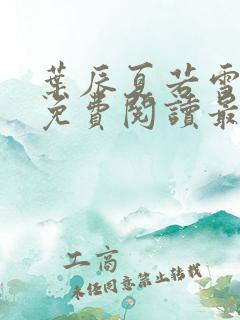 葉辰夏若雪
免費閱讀最
工商
未经同意禁止转载